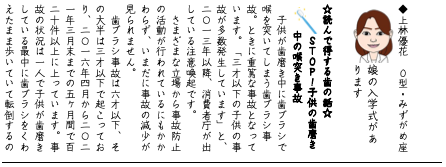 ◆上林優花　O型・みずがめ座
娘の入学式があ
ります
☆読んで得する歯の話☆
STOP!子供の歯磨き
中の喉突き事故
子供が歯磨き中に歯ブラシで
喉を突いてしまう歯ブラシ事
故。ときに重篤な事故となって
います。「三才以下の子供の事
故が多数発生しています」と、
二〇一三年以降、消費者庁が出
している注意喚起です。
さまざまな立場から事故防止
の活動が行われているにもかか
わらず、いまだに事故の減少が
見られません。
歯ブラシ事故は六才以下、そ
の大半は三才以下で起こってお
り、二〇一六年四月から二〇二
一年三月末までの五ヶ月間で百
二十件以上に上っています。事
故の状況は一人で子供が歯磨き
している最中に歯ブラシをくわ
えたまま歩いていて転倒するの